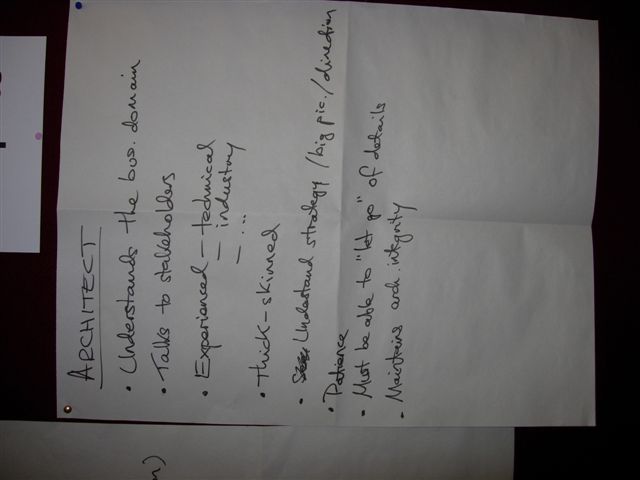 ARCHITECT
• Understands the bus. domain
• Talks to stakeholders
• Experienced – technical
– industry
– ...
• Thick-skinned
• Understand strategy /big pic./direction
• Patience
• Must be able to "let go" of details
• Maintains arch. integrity